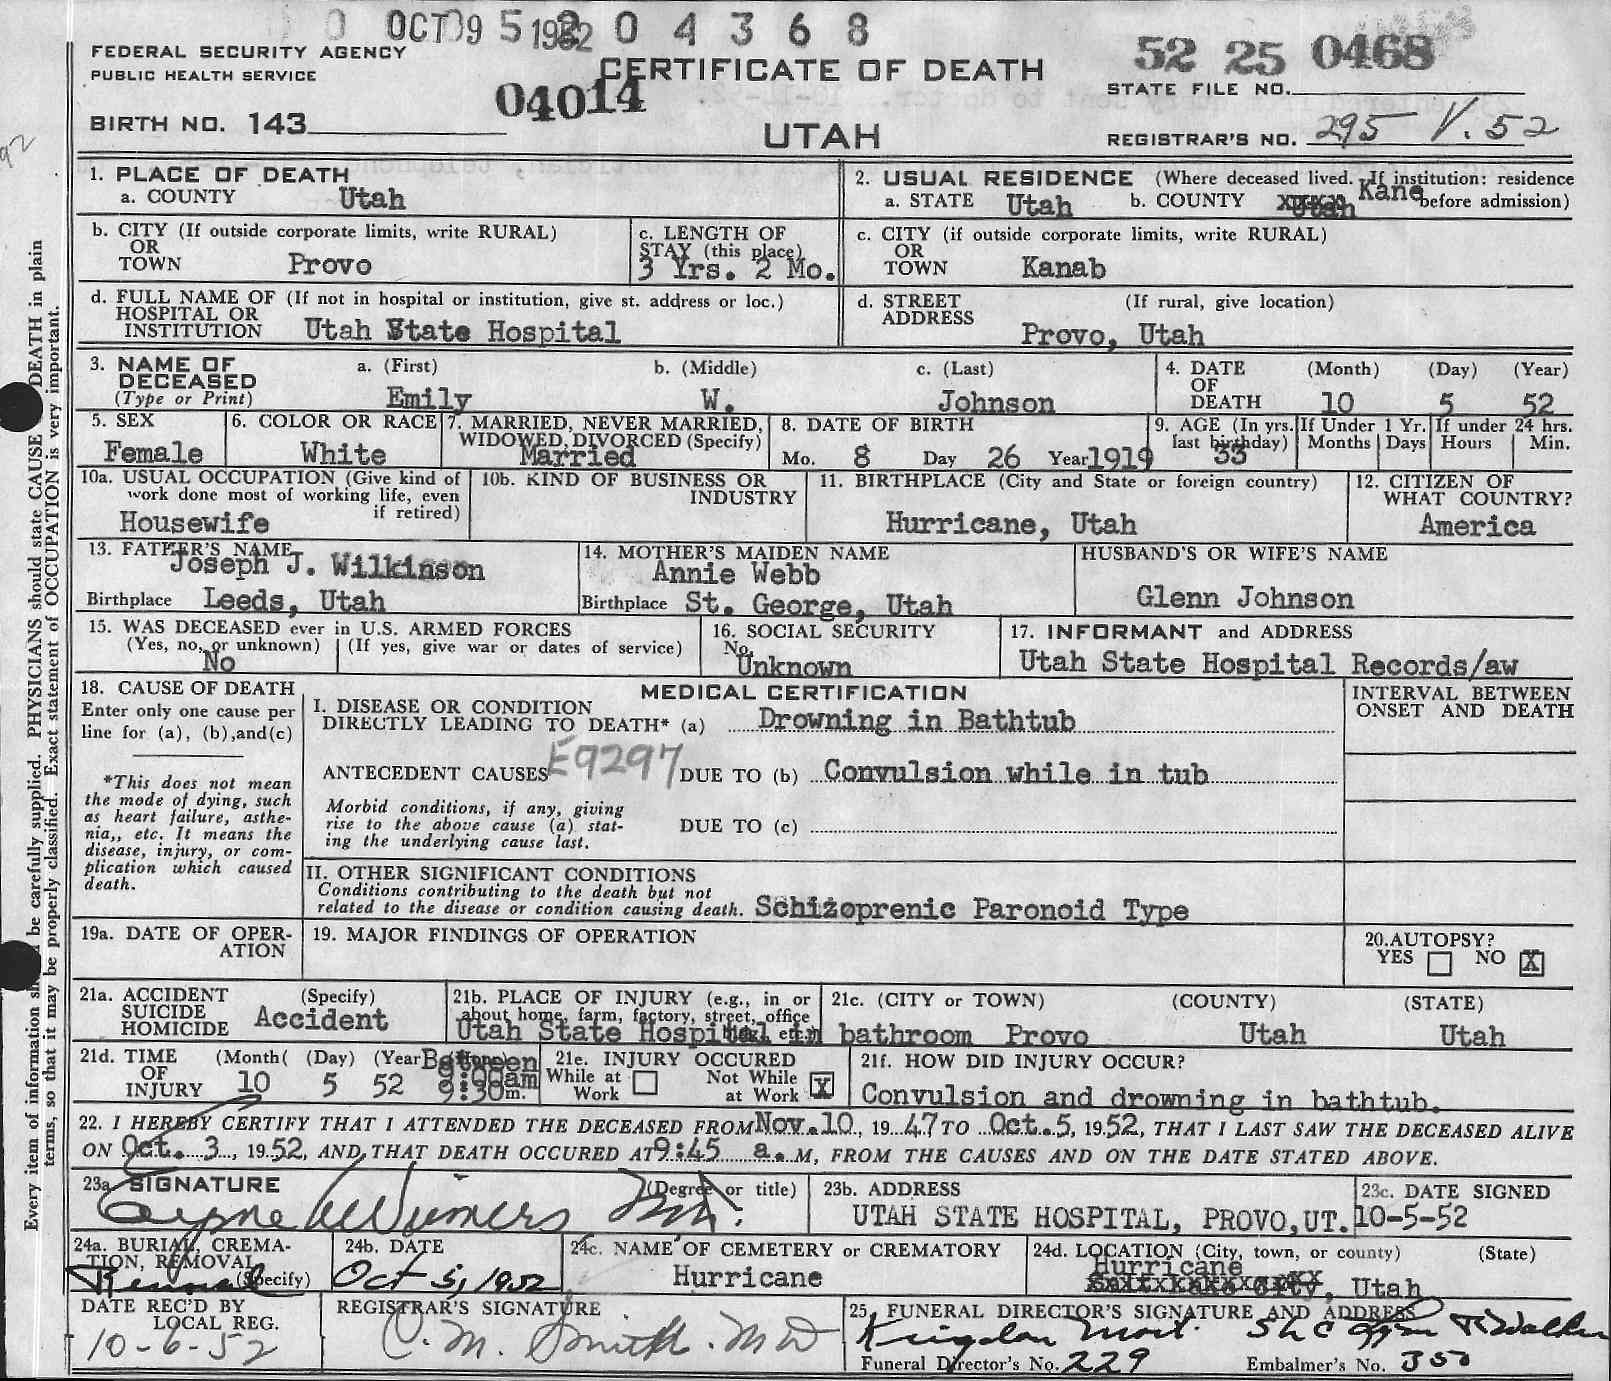 OCT 9 5 1952 0 4 3 6 8
FEDERAL SECURITY AGENCY
PUBLIC HEALTH SERVICE
CERTIFICATE OF DEATH
52 25 0468
STATE FILE NO.
04014
BIRTH NO. 143
UTAH
REGISTRAR'S NO. 295 V. 52
1. PLACE OF DEATH
a. COUNTY Utah
2. USUAL RESIDENCE (Where deceased lived. If institution: residence before admission)
a. STATE Utah b. COUNTY Utah Kane
b. CITY (If outside corporate limits, write RURAL)
OR
TOWN Provo
c. LENGTH OF
STAY (this place)
3 Yrs. 2 Mo.
c. CITY (if outside corporate limits, write RURAL)
OR
TOWN Kanab
d. FULL NAME OF (If not in hospital or institution, give st. address or loc.)
HOSPITAL OR
INSTITUTION Utah State Hospital
d. STREET (If rural, give location)
ADDRESS
Provo, Utah
3. NAME OF
DECEASED
(Type or Print)
a. (First) b. (Middle) c. (Last)
Emily W. Johnson
4. DATE (Month) (Day) (Year)
OF
DEATH 10 5 52
5. SEX
Female
6. COLOR OR RACE
White
7. MARRIED, NEVER MARRIED,
WIDOWED, DIVORCED (Specify)
Married
8. DATE OF BIRTH
Mo. 8 Day 26 Year 1919
9. AGE (In yrs.
last birthday)
33
If Under 1 Yr.
Months Days
If under 24 hrs.
Hours Min.
10a. USUAL OCCUPATION (Give kind of
work done most of working life, even
if retired)
Housewife
10b. KIND OF BUSINESS OR
INDUSTRY
11. BIRTHPLACE (City and State or foreign country)
Hurricane, Utah
12. CITIZEN OF
WHAT COUNTRY?
America
13. FATHER'S NAME
Joseph J. Wilkinson
Birthplace Leeds, Utah
14. MOTHER'S MAIDEN NAME
Annie Webb
Birthplace St. George, Utah
HUSBAND'S OR WIFE'S NAME
Glenn Johnson
15. WAS DECEASED ever in U.S. ARMED FORCES
(Yes, no, or unknown) (If yes, give war or dates of service)
No
16. SOCIAL SECURITY
No.
Unknown
17. INFORMANT and ADDRESS
Utah State Hospital Records/aw
18. CAUSE OF DEATH
Enter only one cause per
line for (a), (b),and(c)
*This does not mean
the mode of dying, such
as heart failure, asthe-
nia,, etc. It means the
disease, injury, or com-
plication which caused
death.
MEDICAL CERTIFICATION
I. DISEASE OR CONDITION
DIRECTLY LEADING TO DEATH* (a) Drowning in Bathtub
ANTECEDENT CAUSES E9297 DUE TO (b) Convulsion while in tub
Morbid conditions, if any, giving
rise to the above cause (a) stat-
ing the underlying cause last.
DUE TO (c)
II. OTHER SIGNIFICANT CONDITIONS
Conditions contributing to the death but not
related to the disease or condition causing death. Schizoprenic Paronoid Type
INTERVAL BETWEEN
ONSET AND DEATH
19a. DATE OF OPER-
ATION
19. MAJOR FINDINGS OF OPERATION
20.AUTOPSY?
YES NO X
21a. ACCIDENT (Specify)
SUICIDE
HOMICIDE Accident
21b. PLACE OF INJURY (e.g., in or
about home, farm, factory, street, office
Utah State Hospital in bathroom
21c. (CITY or TOWN) (COUNTY) (STATE)
Provo Utah Utah
21d. TIME (Month( (Day) (Year
OF
INJURY 10 5 52 Between
9:00am
9:30m.
21e. INJURY OCCURED
While at Work Not While at Work X
21f. HOW DID INJURY OCCUR?
Convulsion and drowning in bathtub.
22. I HEREBY CERTIFY THAT I ATTENDED THE DECEASED FROM Nov. 10, 19 47 TO Oct. 5, 19 52, THAT I LAST SAW THE DECEASED ALIVE
ON Oct. 3, 19 52, AND THAT DEATH OCCURED AT 9:45 a. M, FROM THE CAUSES AND ON THE DATE STATED ABOVE.
23a SIGNATURE (Degree or title)
23b. ADDRESS
UTAH STATE HOSPITAL, PROVO,UT.
23c. DATE SIGNED
10-5-52
24a. BURIAL, CREMA-
TION, REMOVAL
(Specify)
Removal
24b. DATE
Oct 5, 1952
24c. NAME OF CEMETERY or CREMATORY
Hurricane
24d. LOCATION (City, town, or county) (State)
Hurricane
Salt Lake City, Utah
DATE REC'D BY
LOCAL REG.
10-6-52
REGISTRAR'S SIGNATURE
C. M. Smith. MD
25. FUNERAL DIRECTOR'S SIGNATURE AND ADDRESS
Funeral Director's No. 229 Embalmer's No. 350
Every item of information be carefully supplied. PHYSICIANS should state CAUSE DEATH in plain
terms, so that it may be properly classified. Exact statement of OCCUPATION is very important.